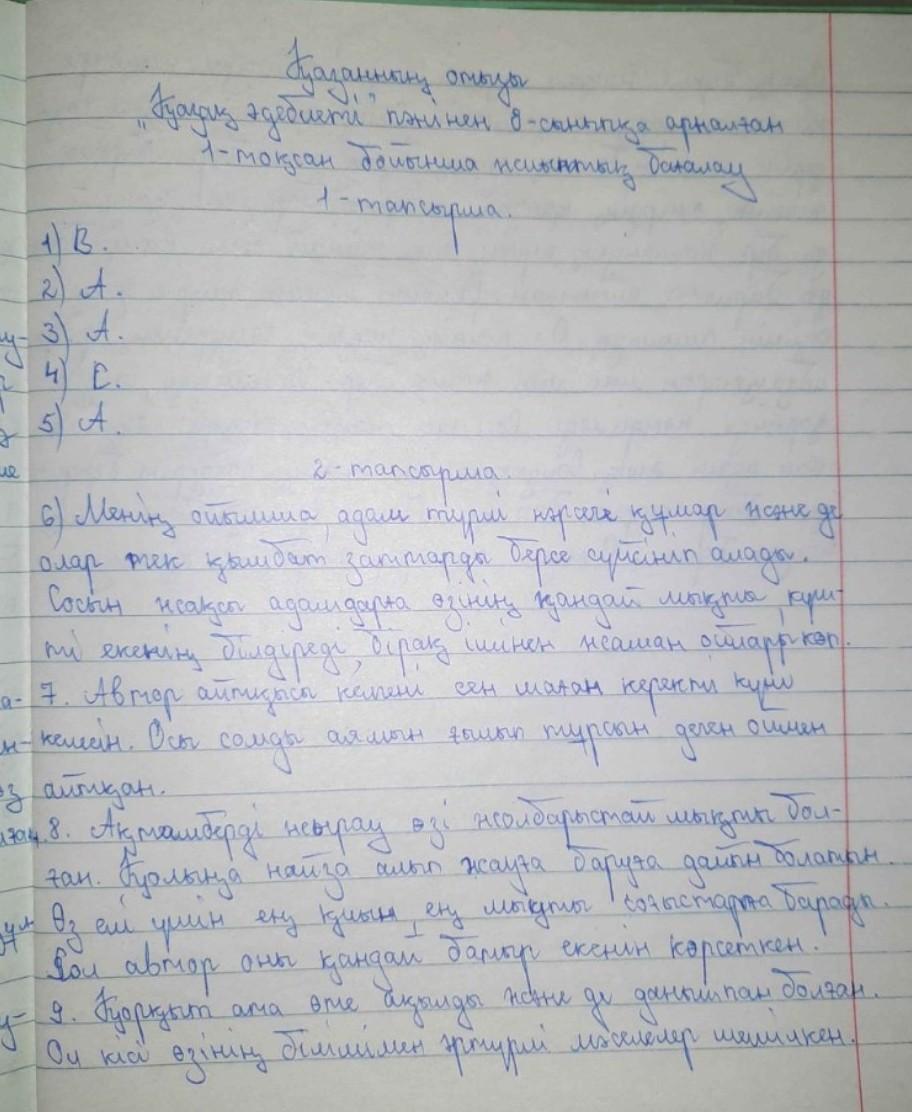 Қазанның отызы
"Қазақ әдебиеті" пәнінен 8-сыныпқа арналған
1-тоқсан бойынша жиынтық бағалау
1-тапсырма.
1) В.
2) А.
3) А.
4) С.
5) А.
2-тапсырма.
6) Менің ойымша, адам түрлі нәрсеге құмар және де
олар тек қымбат заттарды берсе сүйсініп алады.
Сосын жақсы адамдарға өзінің қандай мықты, күш-
ті екенің білдіреді, бірақ ішінен жаман ойлары көп.
7. Автор айтқысы келгені сен маған керекті күні
келсін. Осы соңды аямын қылып тұрсын деген оймен
айтқан.
8. Ақтамберді жырау өзі жолбарыстай мықты бол-
ған. Қолыңа найза алып жауға баруға дайын болатын.
Өз елі үшін ең қиын ең мықты соғыстарға барады.
Сол автор оны қандай батыр екенін көрсеткен.
9. Қорқыт ата өте ақылды және де данышпан болған.
Ол кісі өзінің білімімен әртүрлі мәселелер шешілкен.